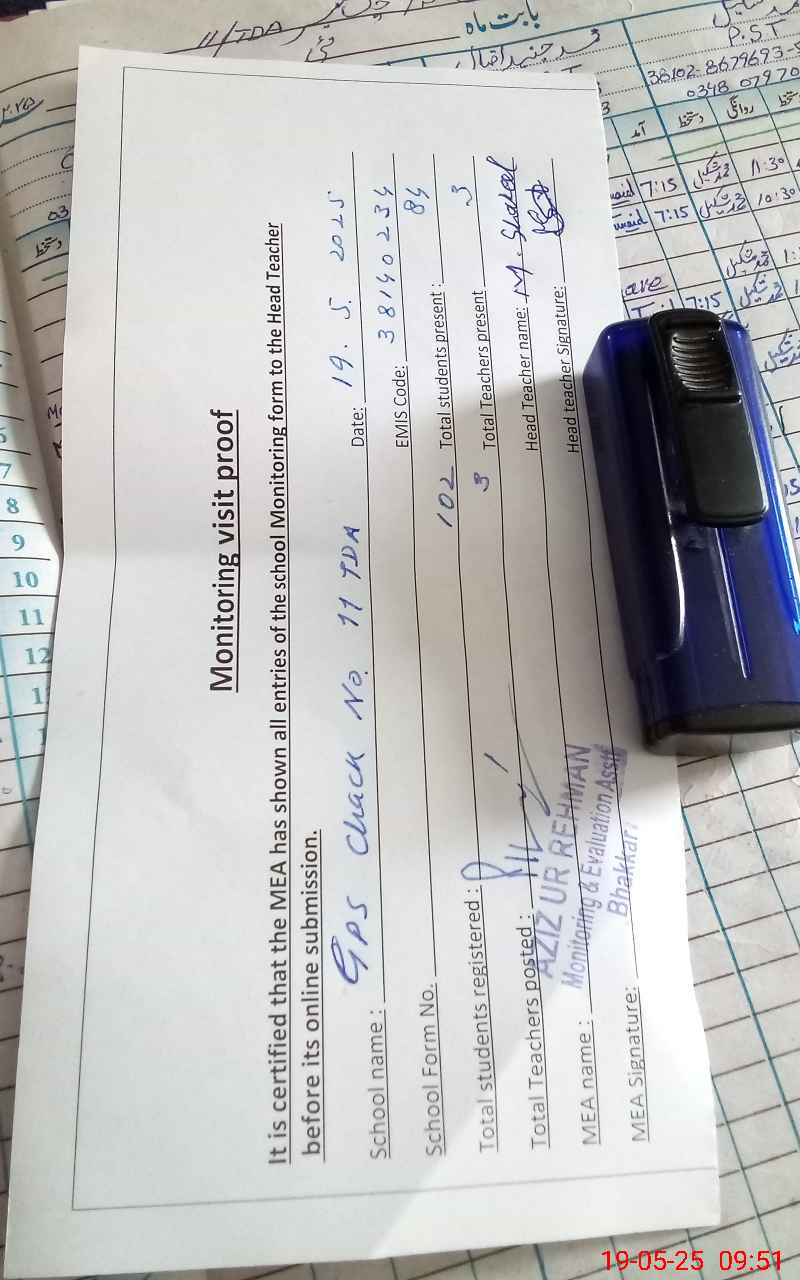 Monitoring visit proof
It is certified that the MEA has shown all entries of the school Monitoring form to the Head Teacher
before its online submission.
School name : GPS Chack No. 11 TDA Date: 19. 5. 2025
School Form No. EMIS Code: 38140234
Total students registered : 102 Total students present : 84
Total Teachers posted : 3 Total Teachers present 3
MEA name : AZIZ UR REHMAN Head Teacher name: M. Shakeel
Monitoring & Evaluation Asstt
Bhakkar
MEA Signature: Head teacher Signature:
11/TDA
بابت ماہ
محمد جنید اقبال
P.ST
38102-8679693-5
0348 07970
آمد دستخط روانگی دستخط
7:15 محمد شکیل 11:30
7:15 محمد شکیل 10:30
محمد شکیل
7:15 محمد شکیل
دستخط
6
7
8
9
10
11
12
19-05-25 09:51